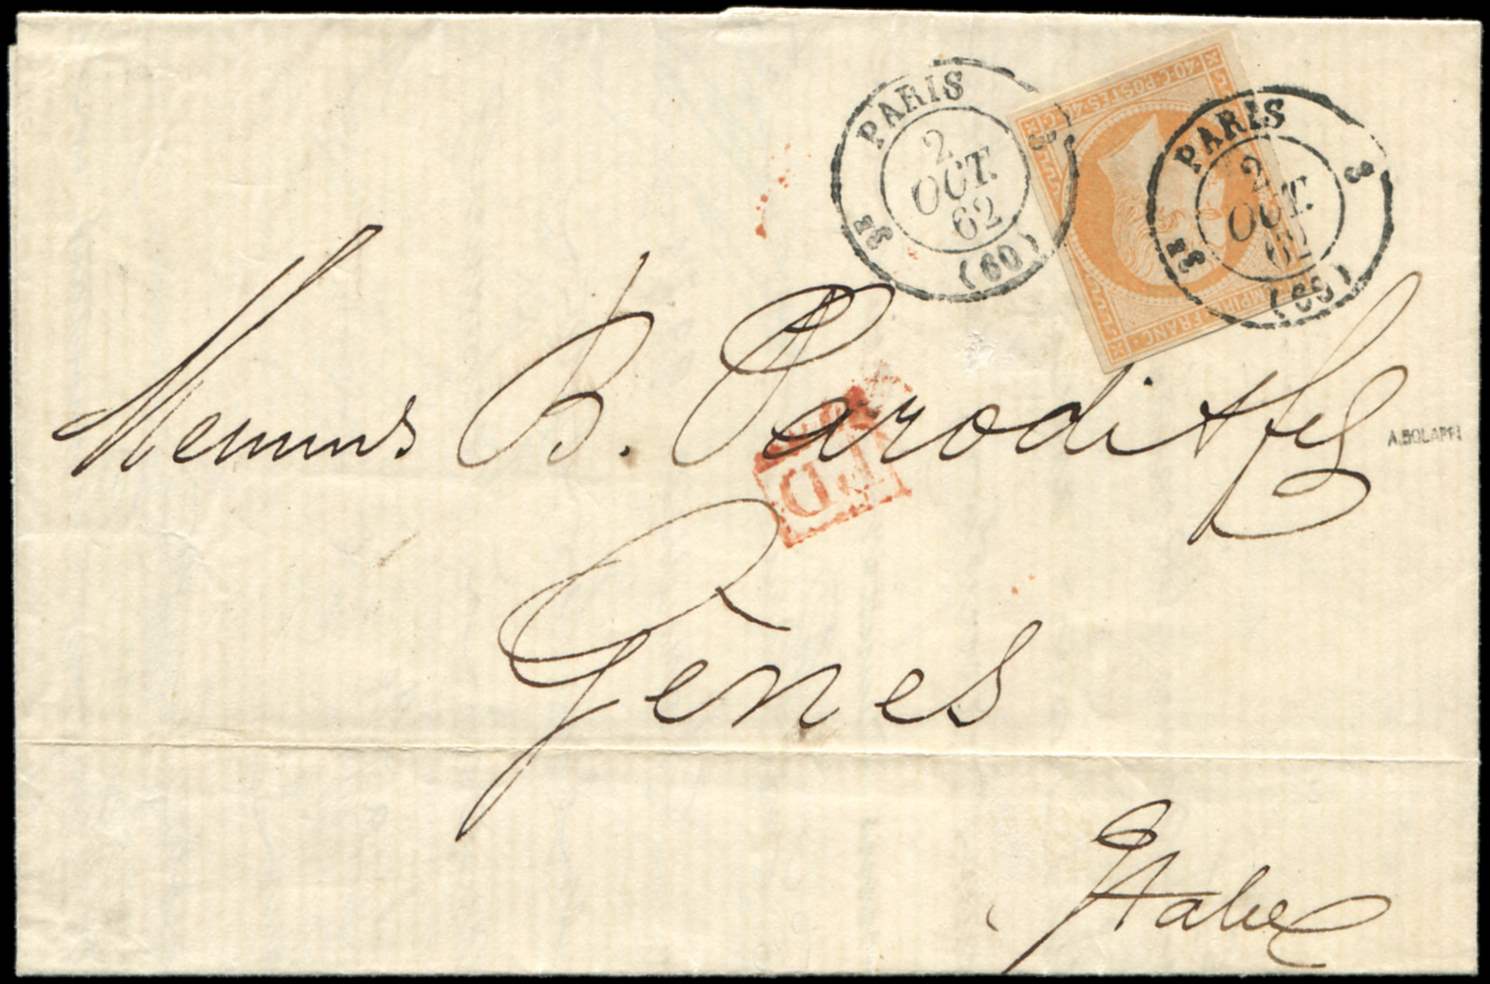 PARIS
2
OCT.
62
(60)
3E
3
40·C·POSTES·40·C
EMPIRE FRANC·
PARIS
2
OCT.
62
(60)
3E
3
Messieurs B. Parodi & fils
A.BOLAFFI
P.D
Gênes
Italie